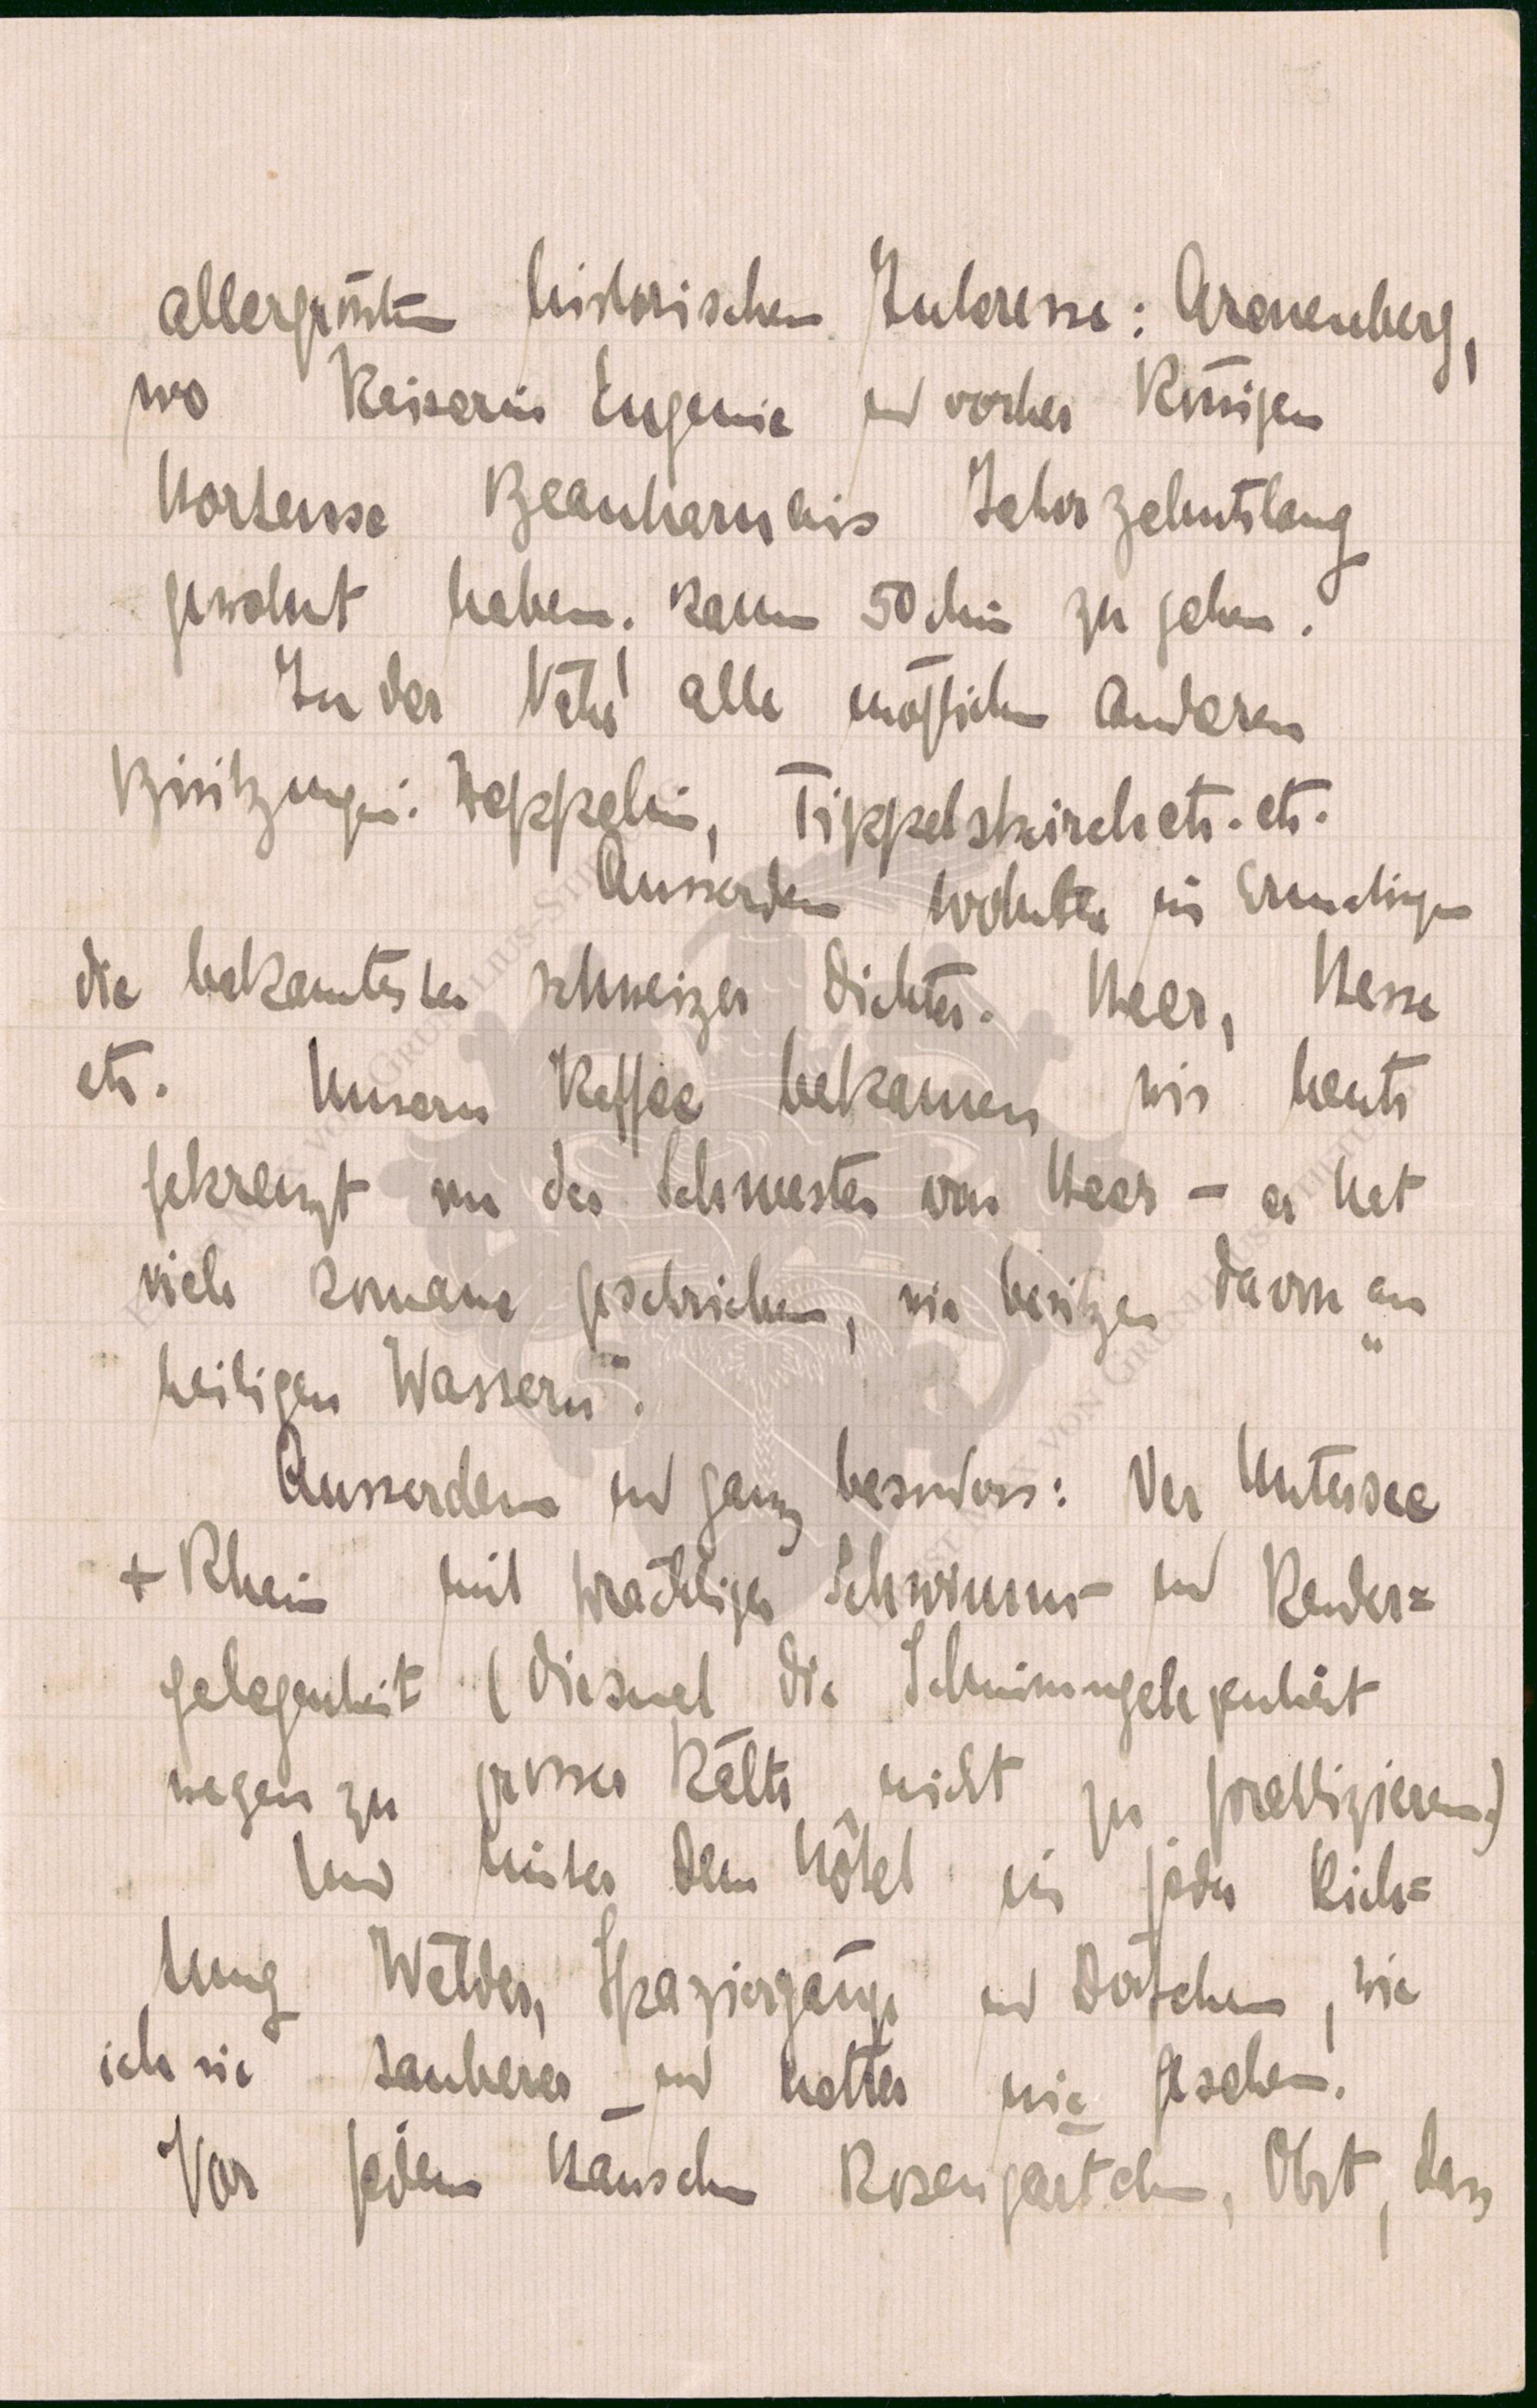 allergrössten historischen Interesse: Arenenberg,
wo Kaiserin Eugenie und vorher Königin
Hortense Beauharnais Jahrzehntelang
gewohnt haben. Kaum 50 Min zu gehen.
In der Nähe alle möglichen anderen
Besitzungen: Zeppelin, Tippelskirch etc. etc.
Ausserdem wohnten in Ermatingen
die bekanntesten schweizer Dichter. Heer, Hesse
etc. Unseren Kaffee bekamen wir heute
gekrenzt von der Schwester von Heer – er hat
viele Romane geschrieben, wir besitzen davon „an
heiligen Wassern“.
Ausserdem und ganz besonders: Der Untersee
+ Rhein mit prächtiger Schwimm- und Ruder=
gelegenheit (diesmal die Schwimmgelegenheit
wegen zu grosser Kälte nicht zu praktizieren.)
Und hinter dem Hôtel in jeder Rich=
tung Wälder, Spaziergänge und Dörfchen, wie
ich sie sauberer und netter nie gesehen.
Vor jedem Häuschen Rosengärtchen, Obst, dass